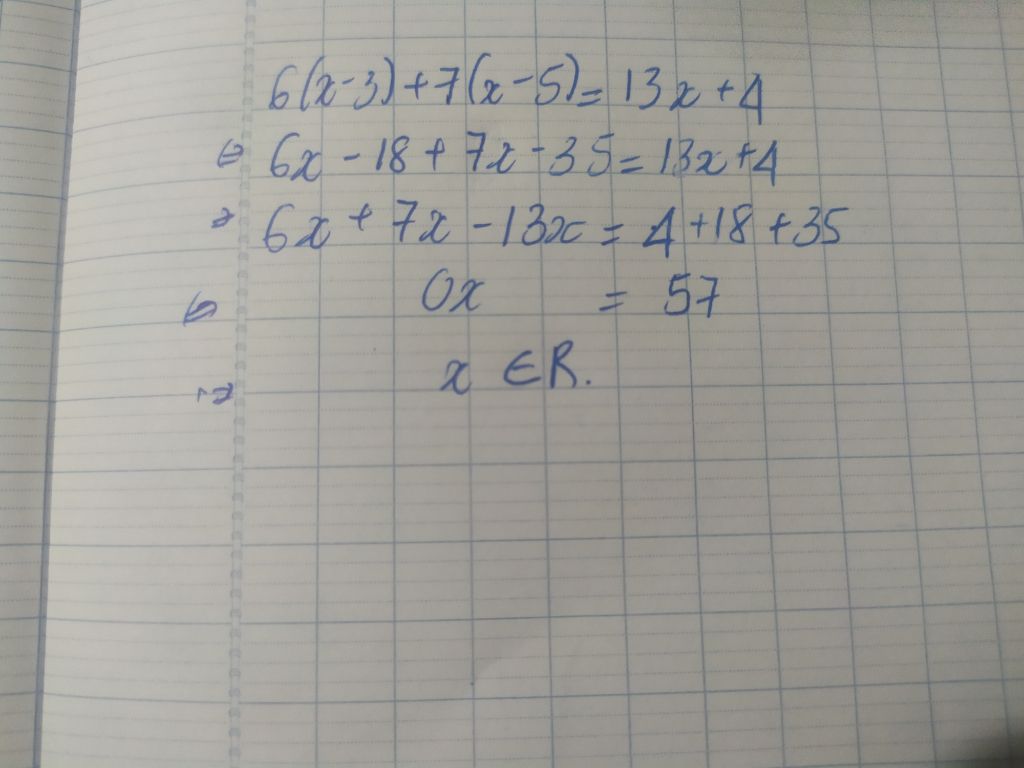 6(x-3)+7(x-5)=13x+4
⇔ 6x-18+7x-35=13x+4
⇔ 6x+7x-13x=4+18+35
⇔ 0x = 57
⇔ x ∈ R.